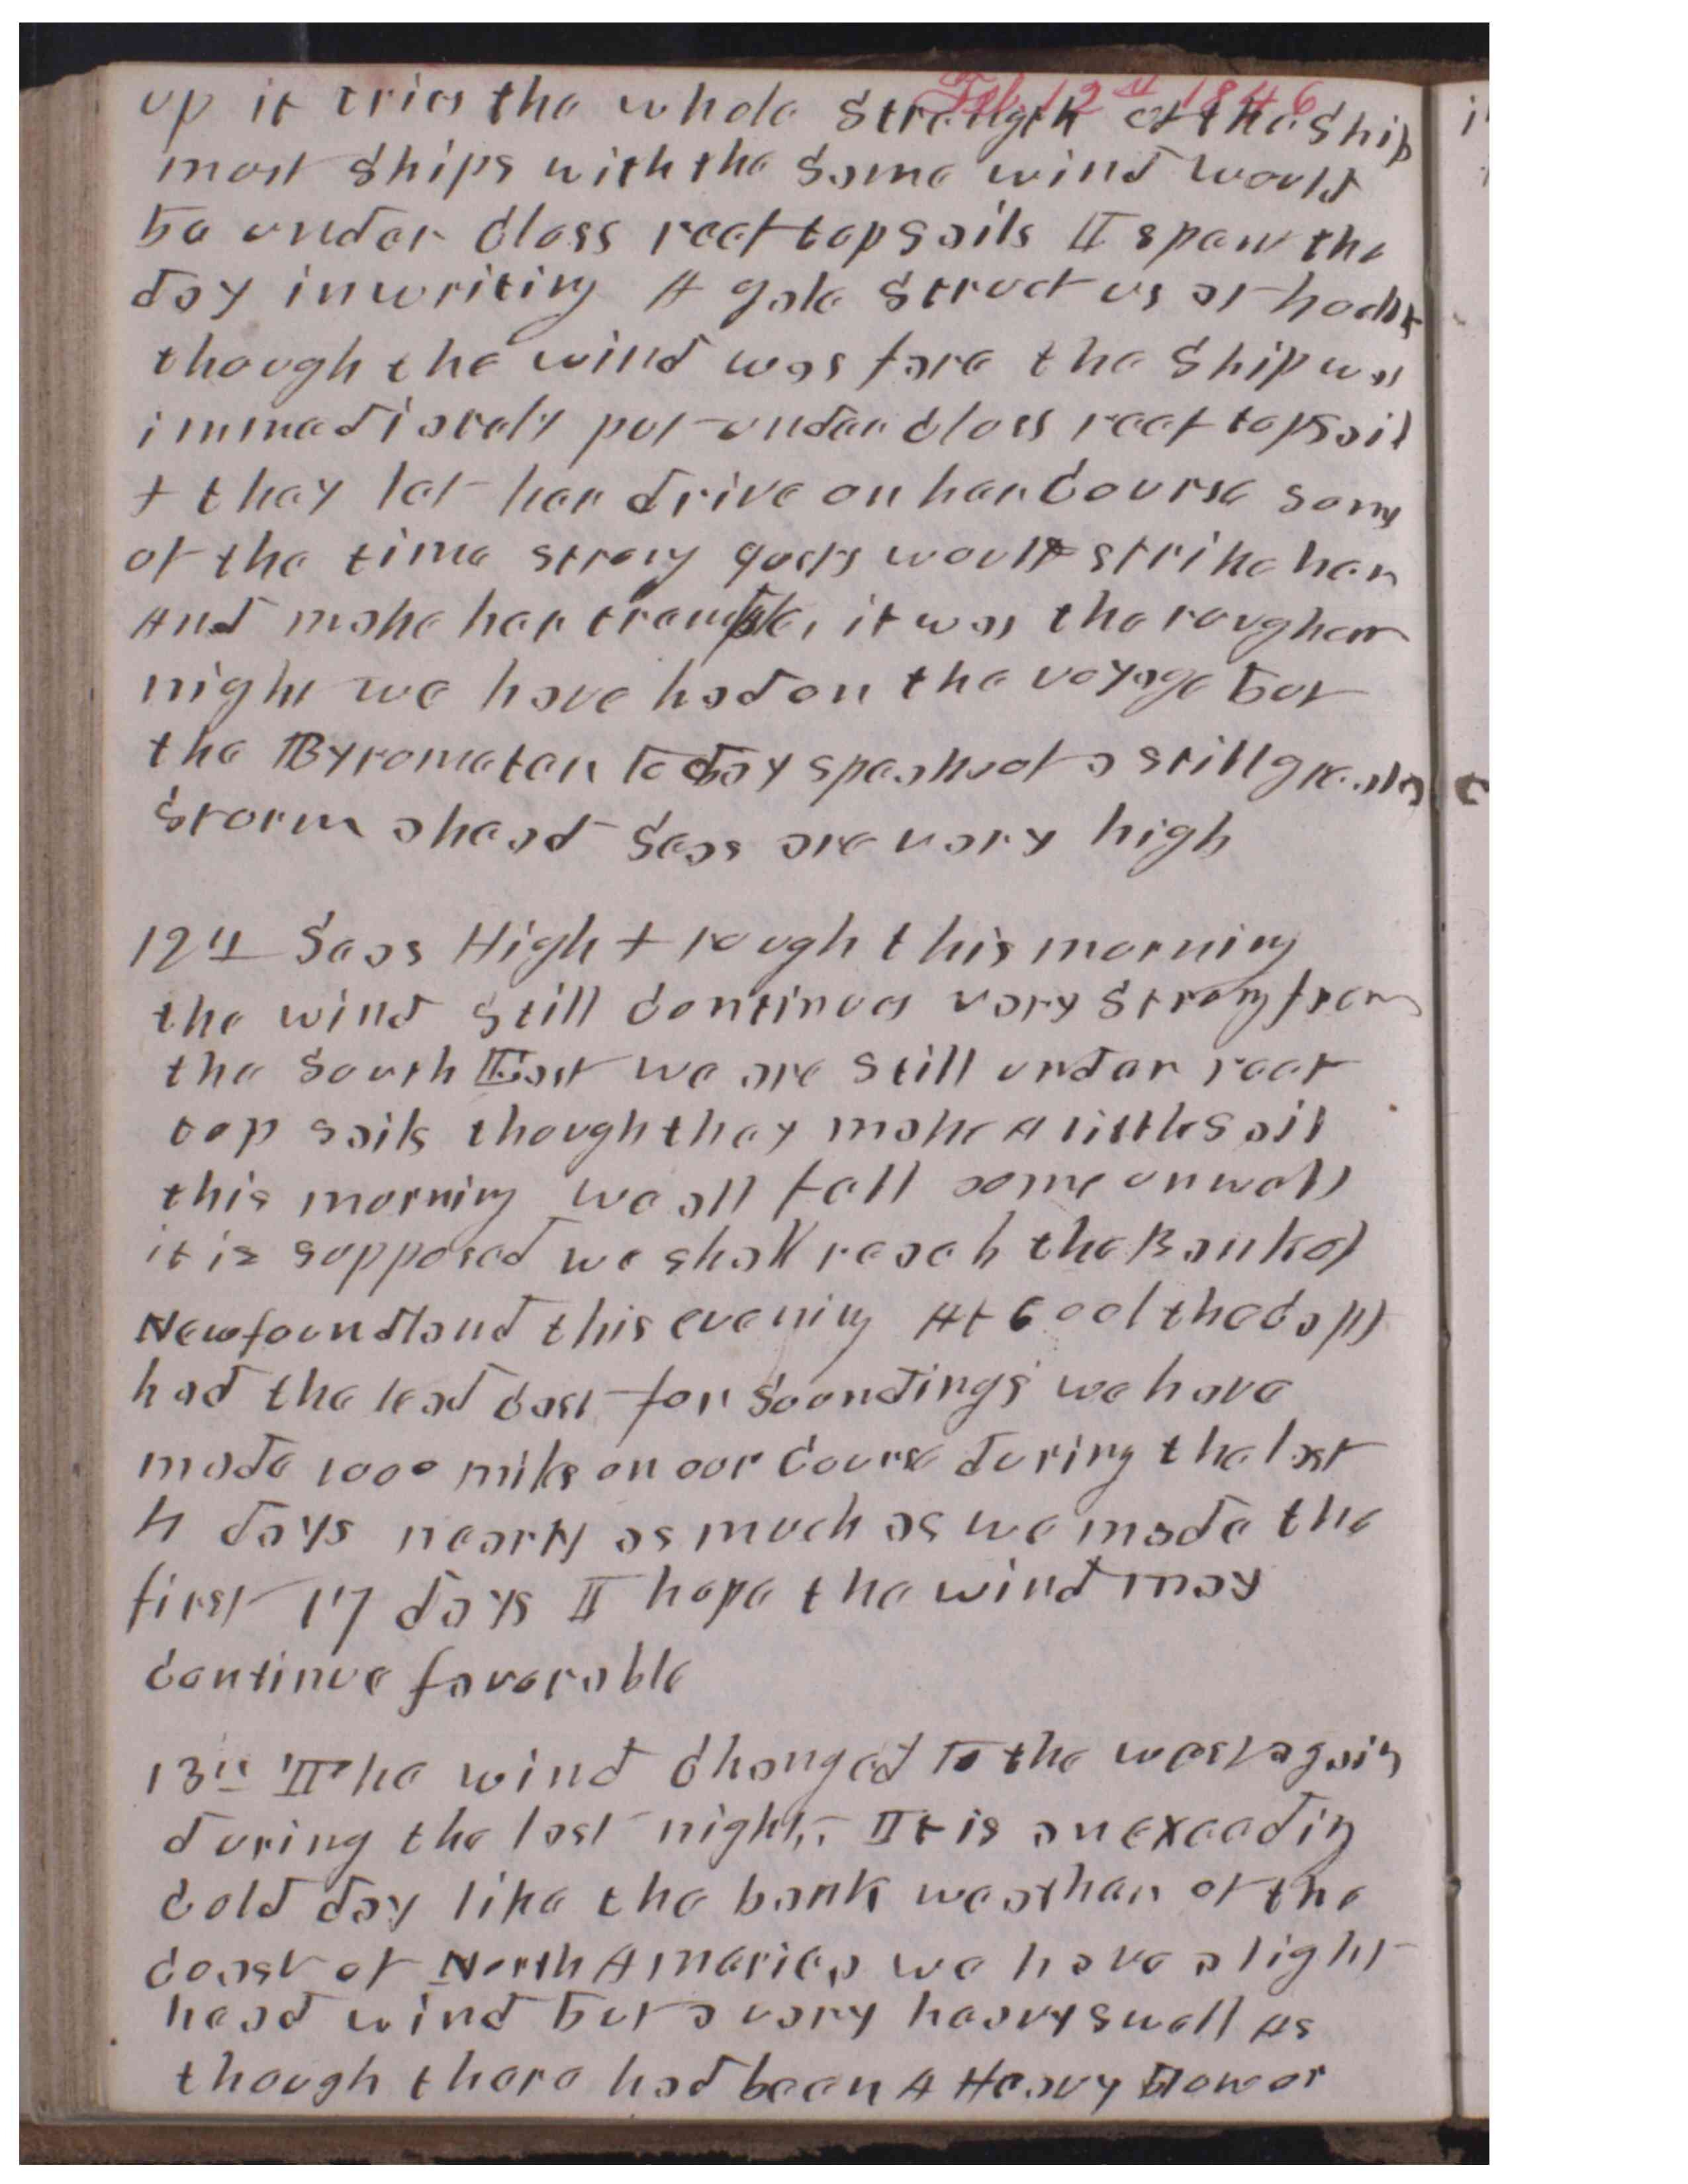 Feb 12th 1846
up it tries the whole Strength of the Ship
most Ships with the Same wind would
be under Closs reef topsails I spent the
day in writing A gale Struct us at 4 oclk
though the wind was fare the Ship was
immediately put under closs reef topsail
& they let her drive on her Course Some
of the time strong gusts would strike her
And make her tremble, it was the roughest
night we have had on the voyage but
the Byrometer to day speaks of a still greater
Storm ahead Seas are very high
12th Seas High & rough this morning
the wind still Continues very Strong from
the South East we are still under reef
top sails though they make A little Sail
this morning we all fell some unwell
it is supposed we shall reach the Bank of
Newfoundland this evening At 6 ocl the Capt
had the lead Cast for Soundings we have
made 1000 miles on our Course during the last
4 days nearly as much as we made the
first 17 days I hope the wind may
Continue favorable
13th The wind Changed to the west again
during the last night, It is an exceeding
Cold day like the bank weather of the
Coast of North America we have a light
head wind but a very heavy swell As
though there had been A Heavy blow or